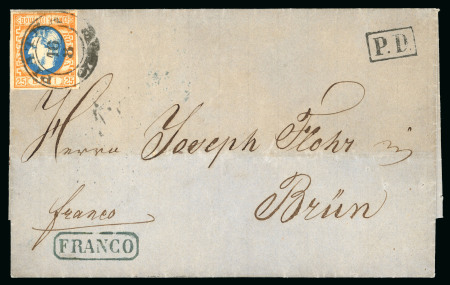 P. D.
Herrn Joseph Flohr in
Brün
franco
FRANCO
25 25